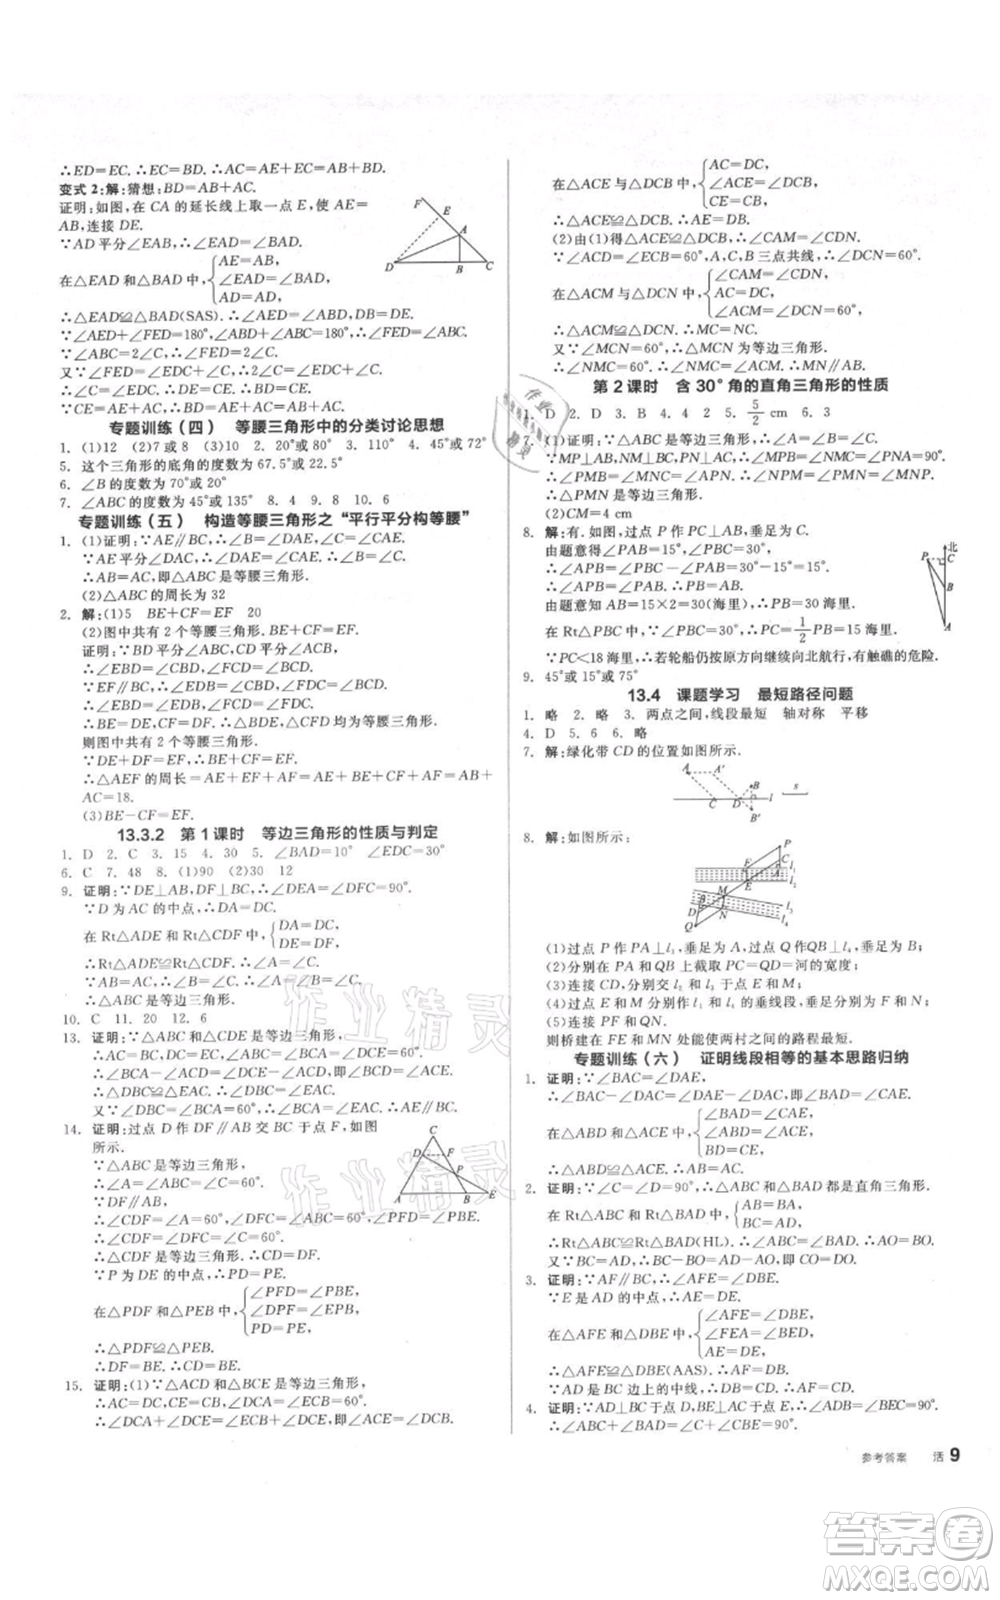 ∴ED=EC. ∴EC=BD. ∴AC=AE+EC=AB+BD.
变式2:解:猜想:BD=AB+AC.
证明:如图,在CA的延长线上取一点E,使AE=
AB,连接DE.
∵AD平分∠EAB,∴∠EAD=∠BAD.
在△EAD和△BAD中,{AE=AB, ∠EAD=∠BAD, AD=AD,
∴△EAD≌△BAD(SAS). ∴∠AED=∠ABD,DB=DE.
∵∠AED+∠FED=180°,∠ABC+∠ABD=180°,∴∠FED=∠ABC.
∵∠ABC=2∠C,∴∠FED=2∠C.
又∵∠FED=∠C+∠EDC,
∴∠C=∠EDC. ∴DE=CE.
∴BD=CE=AC+AE=AC+AB.
专题训练(四) 等腰三角形中的分类讨论思想
1. (1)12 (2)7或8 (3)10 2. 20°或80° 3. 110° 4. 45°或72°
5. 这个三角形的底角的度数为67.5°或22.5°
6. ∠B的度数为70°或20°
7. ∠ABC的度数为45°或135° 8. 4 9. 8 10. 6
专题训练(五) 构造等腰三角形之“平行平分构等腰”
1. (1)证明:∵AE∥BC,∴∠B=∠DAE,∠C=∠CAE.
∵AE平分∠DAC,∴∠DAE=∠CAE.
∴∠B=∠C. ∴AB=AC,即△ABC是等腰三角形.
(2)△ABC的周长为32
2. 解:(1)5 BE+CF=EF 20
(2)图中共有2个等腰三角形,BE+CF=EF.
证明:∵BD平分∠ABC,CD平分∠ACB,
∴∠EBD=∠CBD,∠FCD=∠BCD.
∵EF∥BC,∴∠EDB=∠CBD,∠FDC=∠BCD.
∴∠EBD=∠EDB,∠FDC=∠FCD.
∴BE=DE,CF=DF. ∴△BDE,△CDF均为等腰三角形.
则图中共有2个等腰三角形.
∵DE+DF=EF,∴BE+CF=EF.
∴△AEF的周长=AE+EF+AF=AE+BE+CF+AF=AB+
AC=18.
(3)BE-CF=EF.
13.3.2 第1课时 等边三角形的性质与判定
1. D 2. C 3. 15 4. 30 5. ∠BAD=10° ∠EDC=30°
6. C 7. 48 8. (1)90 (2)30 12
9. 证明:∵DE⊥AB,DF⊥BC,∴∠AED=∠DFC=90°.
∵D为AC的中点,∴DA=DC.
在Rt△ADE和Rt△CDF中,{DA=DC, DE=DF,
∴Rt△ADE≌Rt△CDF. ∴∠A=∠C.
∴AB=BC.
10. C 11. 20 12. 6
13. 证明:∵△ABC和△CDE是等边三角形,
∴AC=BC,CD=CE,∠BCA=∠DCE=60°.
∴∠BCD=∠ACE.
∴△DBC≌△EAC. ∴∠DBC=∠EAC.
又∵∠DBC=∠ACB=60°,∴∠ACB=∠EAC. ∴AE∥BC.
14. 证明:过点D作DF∥AB交BC于点F,如图
所示.
∵△ABC是等边三角形,
∴∠A=∠ABC=∠C=60°.
∵DF∥AB,
∴∠CDF=∠A=60°,∠DFC=∠ABC=60°,∠PFD=∠PBE.
∴△CDF是等边三角形. ∴CD=DF.
∵P为DE的中点,∴PD=PE.
在△PDF和△PEB中,{∠PFD=∠PBE, ∠DPF=∠EPB, PD=PE,
∴△PDF≌△PEB.
∴DF=BE. ∴CD=BE.
15. 证明:(1)∵△ACD和△BCE是等边三角形,
∴AC=DC,CE=CB,∠DCA=60°,∠ECB=60°.
∴∠DCA+∠DCE=∠ECB+∠DCE,即∠ACE=∠DCB.
在△ACE与△DCB中,{AC=DC, ∠ACE=∠DCB, CE=CB,
∴△ACE≌△DCB. ∴AE=DB.
(2)由(1)得∠CAM=∠CDN.
∵∠ACD=∠ECB=60°,A,C,B三点共线,∴∠DCN=60°.
在△ACM与△DCN中,{∠CAM=∠CDN, AC=DC, ∠ACM=∠DCN=60°,
∴△ACM≌△DCN. ∴MC=NC.
又∵∠MCN=60°,∴△MCN为等边三角形.
∴∠NMC=60°. ∴∠NMC=∠ACM. ∴MN∥AB.
第2课时 含30°角的直角三角形的性质
1. D 2. D 3. B 4. 4 2 5. 5/2 cm 6. 3
7. (1)证明:∵△ABC是等边三角形,∴∠A=∠B=∠C.
∵MP⊥AB,MN⊥BC,PN⊥AC,∴∠MPB=∠NMC=∠PNA=90°.
∴∠PMB=∠MNC=∠APN. ∴∠NPM=∠PMN=∠MNP.
∴△PMN是等边三角形.
(2)CM=4 cm
8. 解:有. 如图,过点P作PC⊥AB,垂足为C.
由题意得∠APB=∠PBC-∠PAB=15°=∠PAB.
∴△APB为等腰三角形. ∴AB=BP.
由题意知AB=15×2=30(海里),∴BP=30海里.
在Rt△PBC中,∵∠PBC=30°,∴PC=1/2 PB=15海里.
∵PC<18海里,∴若轮船仍按原方向继续向北航行,有触礁的危险.
9. 45°或15°或75°
13.4 课题学习 最短路径问题
1. 略 2. 略 3. 两点之间,线段最短 轴对称 平移
4. D 5. 6 6. 略
7. 解:绿化带CD的位置如图所示.
8. 解:如图所示:
(1)过点P作PA⊥l₁,垂足为A,过点Q作QB⊥l₄,垂足为B;
(2)分别在PA和QB上截取PC=QD=河的宽度;
(3)连接CD,分别交l₂和l₃于点E和M;
(4)过点E和M分别作l₁和l₄的垂线段,垂足分别为F和N;
(5)连接PF和QN.
则桥建在FE和MN处能使两村之间的路程最短.
专题训练(六) 证明线段相等的基本思路归纳
1. 证明:∵∠BAC=∠DAE,
∴∠BAC-∠BAE=∠DAE-∠BAE,即∠BAD=∠CAE.
在△ABD和△ACE中,{∠BAD=∠CAE, ∠ABD=∠ACE, BD=CE,
∴△ABD≌△ACE. ∴AD=AE.
2. 证明:∵∠C=∠D=90°,∴△ABC和△BAD都是直角三角形.
在Rt△ABC和Rt△BAD中,{AB=BA, BC=AD,
∴Rt△ABC≌Rt△BAD(HL). ∴∠ABC=∠BAD. ∴AO=BO.
又∵BC=AD,∴BC-BO=AD-AO,即CO=DO.
3. 证明:∵AF∥BC,∴∠AFE=∠DBE.
∵E是AD的中点,∴AE=DE.
在△AFE和△DBE中,{∠AFE=∠DBE, ∠FEA=∠BED, AE=DE,
∴△AFE≌△DBE(AAS). ∴AF=DB.
又∵AD为BC边上的中线,∴DB=CD. ∴AF=CD.
4. 证明:∵AD⊥BC于点D,BE⊥AC于点E,∴∠ADC=∠BEC=90°.
∴∠ABC+∠C=90°,∠CBE+∠C=90°.
参考答案 活 9
作业精灵
作业精灵
作业精灵
答案卷
MXQE.COM